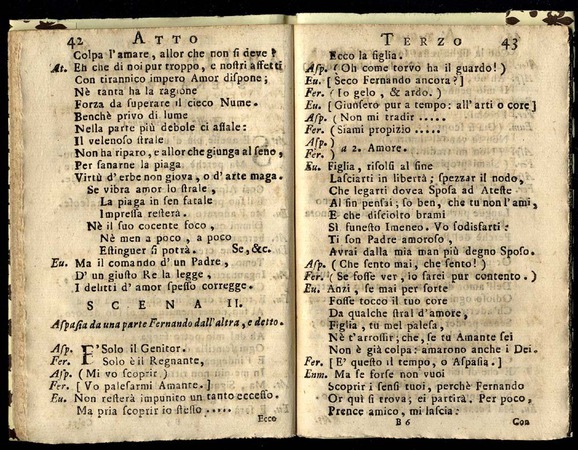 42 ATTO
Colpa l'amare, allor che non si deve?
At. Eh che di noi pur troppo, e nostri affetti
Con tirannico impero Amor dispone;
Nè tanta ha la ragione
Forza da superare il cieco Nume.
Benchè privo di lume
Nella parte più debole ci assale:
Il velenoso strale
Non ha riparo, e allor che giunga al seno,
Per sanarne la piaga
Virtù d'erbe non giova, o d'arte maga.
Se vibra amor lo strale,
La piaga in sen fatale
Impressa resterà.
Nè il suo cocente foco,
Nè men a poco, a poco
Estinguer si potrà. Se, &c.
Eu. Ma il comando d'un Padre,
D'un giusto Re la legge,
I delitti d'amor spesso corregge.
SCENA II.
Aspasia da una parte Fernando dall'altra, e detto.
Asp. E' Solo il Genitor.
Fer. Solo è il Regnante,
Asp. (Mi vo scoprir)
Fer. [Vo palesarmi Amante.]
Eu. Non resterà impunito un tanto eccesso.
Ma pria scoprir io stesso .....
Ecco
TERZO 43
Ecco la figlia.
Asp. (Oh come torvo ha il guardo!)
Eu. [Seco Fernando ancora?]
Fer. (Io gelo, & ardo.)
Eu. [Giunsero pur a tempo: all'arti o core]
Asp. (Non mi tradir .....
Fer. (Siami propizio .....
Asp.)
Fer.) a 2. Amore.
Eu. Figlia, risolsi al fine
Lasciarti in libertà; spezzar il nodo,
Che legarti dovea Sposa ad Ateste
Al fin pensai; so ben, che tu non l'ami,
E che disciolto brami
Sì funesto Imeneo. Vo sodisfarti:
Ti son Padre amoroso,
Avrai dalla mia man più degno Sposo.
Asp. (Che sento mai, che sento!)
Fer. (Se fosse ver, io sarei pur contento.)
Eu. Anzi, se mai per sorte
Fosse tocco il tuo core
Da qualche stral d'amore,
Figlia, tu mel palesa,
Nè t'arrossir; che, se tu Amante sei
Non è già colpa: amarono anche i Dei.
Fer. [E' questo il tempo, o Aspasia.]
Eum. Ma se forse non vuoi
Scoprir i sensi tuoi, perchè Fernando
Or quì si trova; ei partirà. Per poco,
Prence amico, mi lascia:
B 6 Con